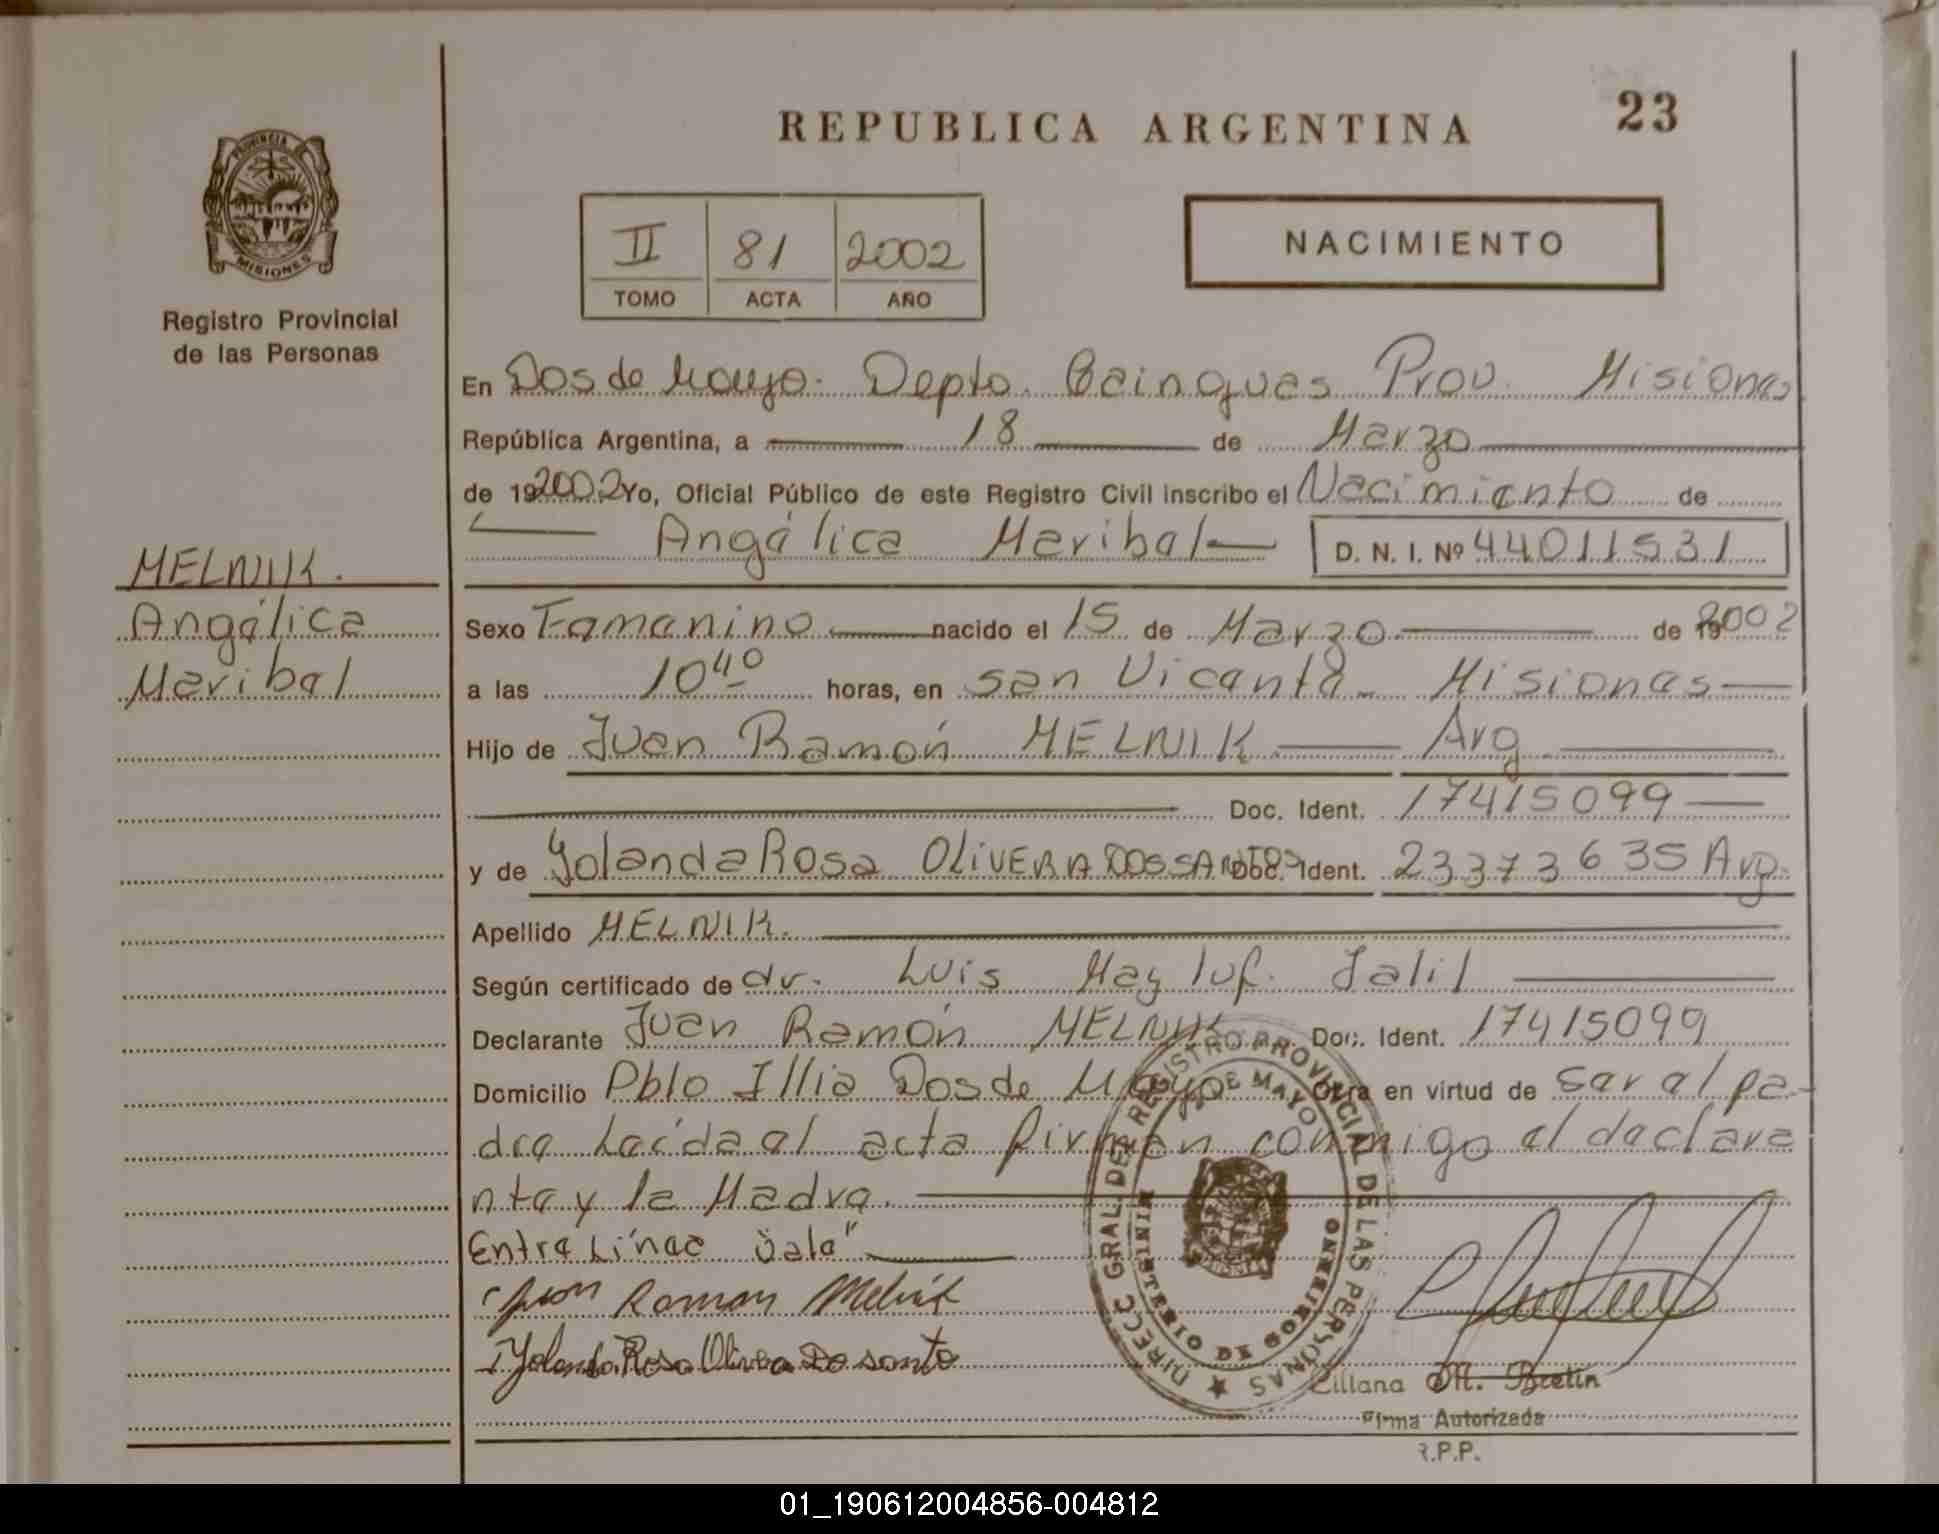 REPUBLICA ARGENTINA
23
PROVINCIA DE
MISIONES
Registro Provincial
de las Personas
II 81 2002
TOMO ACTA AÑO
NACIMIENTO
En Dos de Mayo. Depto. Cainguas Prov. Misiones
República Argentina, a 18 de Marzo
de 192002 Yo, Oficial Público de este Registro Civil inscribo el Nacimiento de
Angélica Maribel D. N. I. Nº 44011531
MELNIK.
Angélica
Maribel
Sexo Femenino nacido el 15 de Marzo de 192002
a las 10 40 horas, en San Vicente Misiones
Hijo de Juan Ramón MELNIK Arg
Doc. Ident. 17415099
y de Yolanda Rosa OLIVERA DOS SANTOS Doc. Ident. 23373635 Arg.
Apellido MELNIK.
Según certificado de dr. Luis Mayluf. Jalil
Declarante Juan Ramón MELNIK Doc. Ident. 17415099
Domicilio Pblo Illia Dos de Mayo Obra en virtud de ser el pa-
dre Leída el acta firman conmigo el declara
nte y la Madre.
Entre Línea "Vale"
Juan Ramon Melnik
Yolanda Rosa Olivera Do santo
DIRECC GRAL. DEL REGISTRO PROVINCIAL DE LAS PERSONAS
DE MAYO
MINISTERIO DE GOBIERNO
Liliana M. Bretin
Firma Autorizada
R.P.P.
01_190612004856-004812